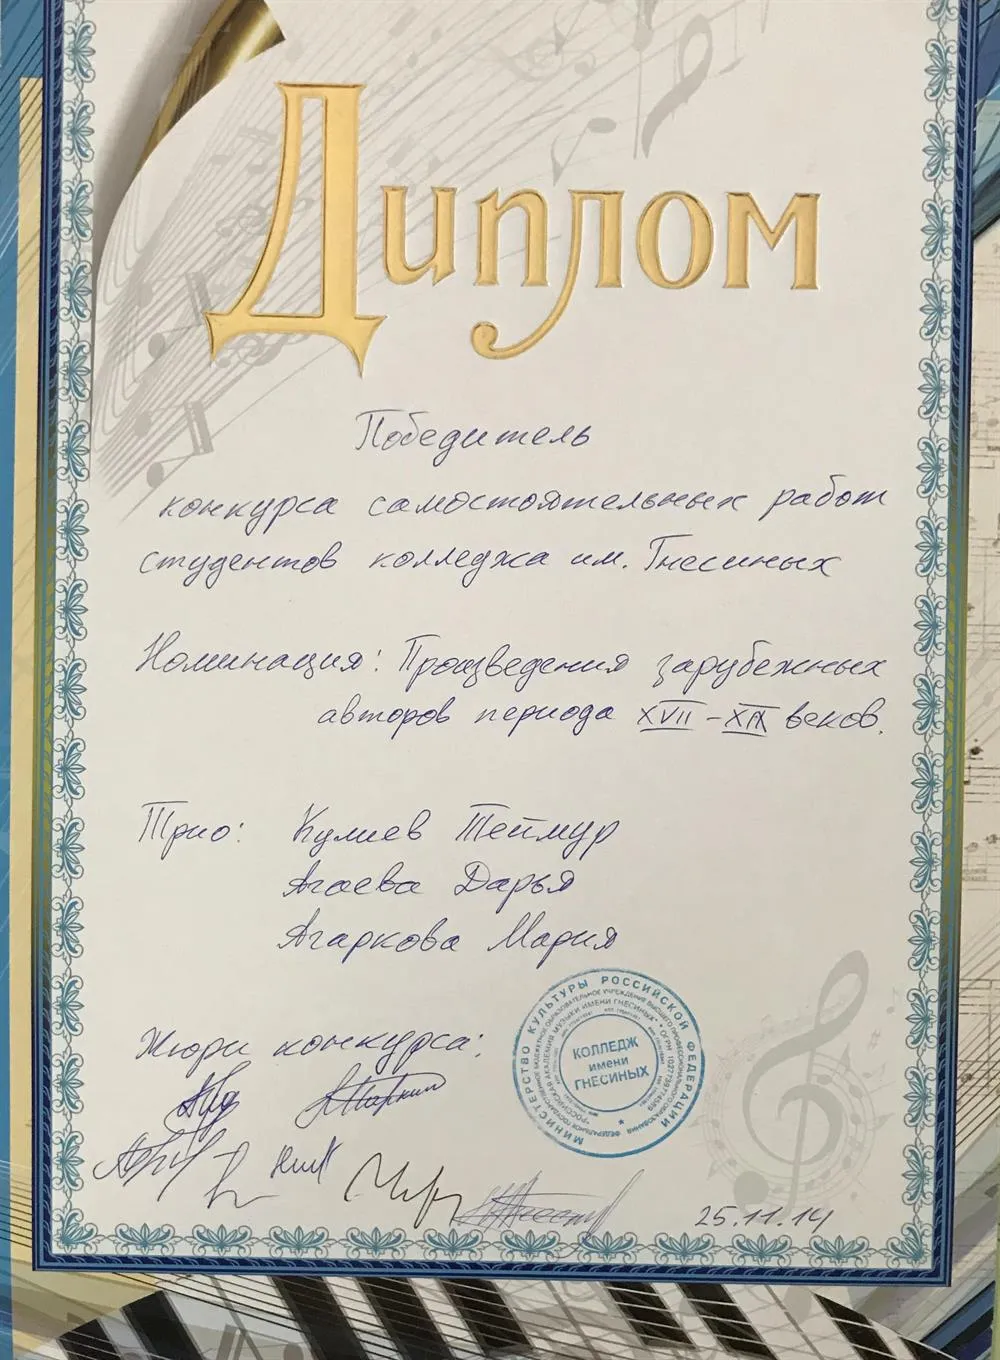 Диплом
Победитель
конкурса самостоятельных работ
студентов колледжа им. Гнесиных
Номинация: Произведения зарубежных
авторов периода XVII - XIX веков.
Трио: Кулиев Теймур
Агаева Дарья
Агаркова Мария
Жюри конкурса:
МИНИСТЕРСТВО КУЛЬТУРЫ РОССИЙСКОЙ ФЕДЕРАЦИИ
КОЛЛЕДЖ
имени
ГНЕСИНЫХ
25.11.14